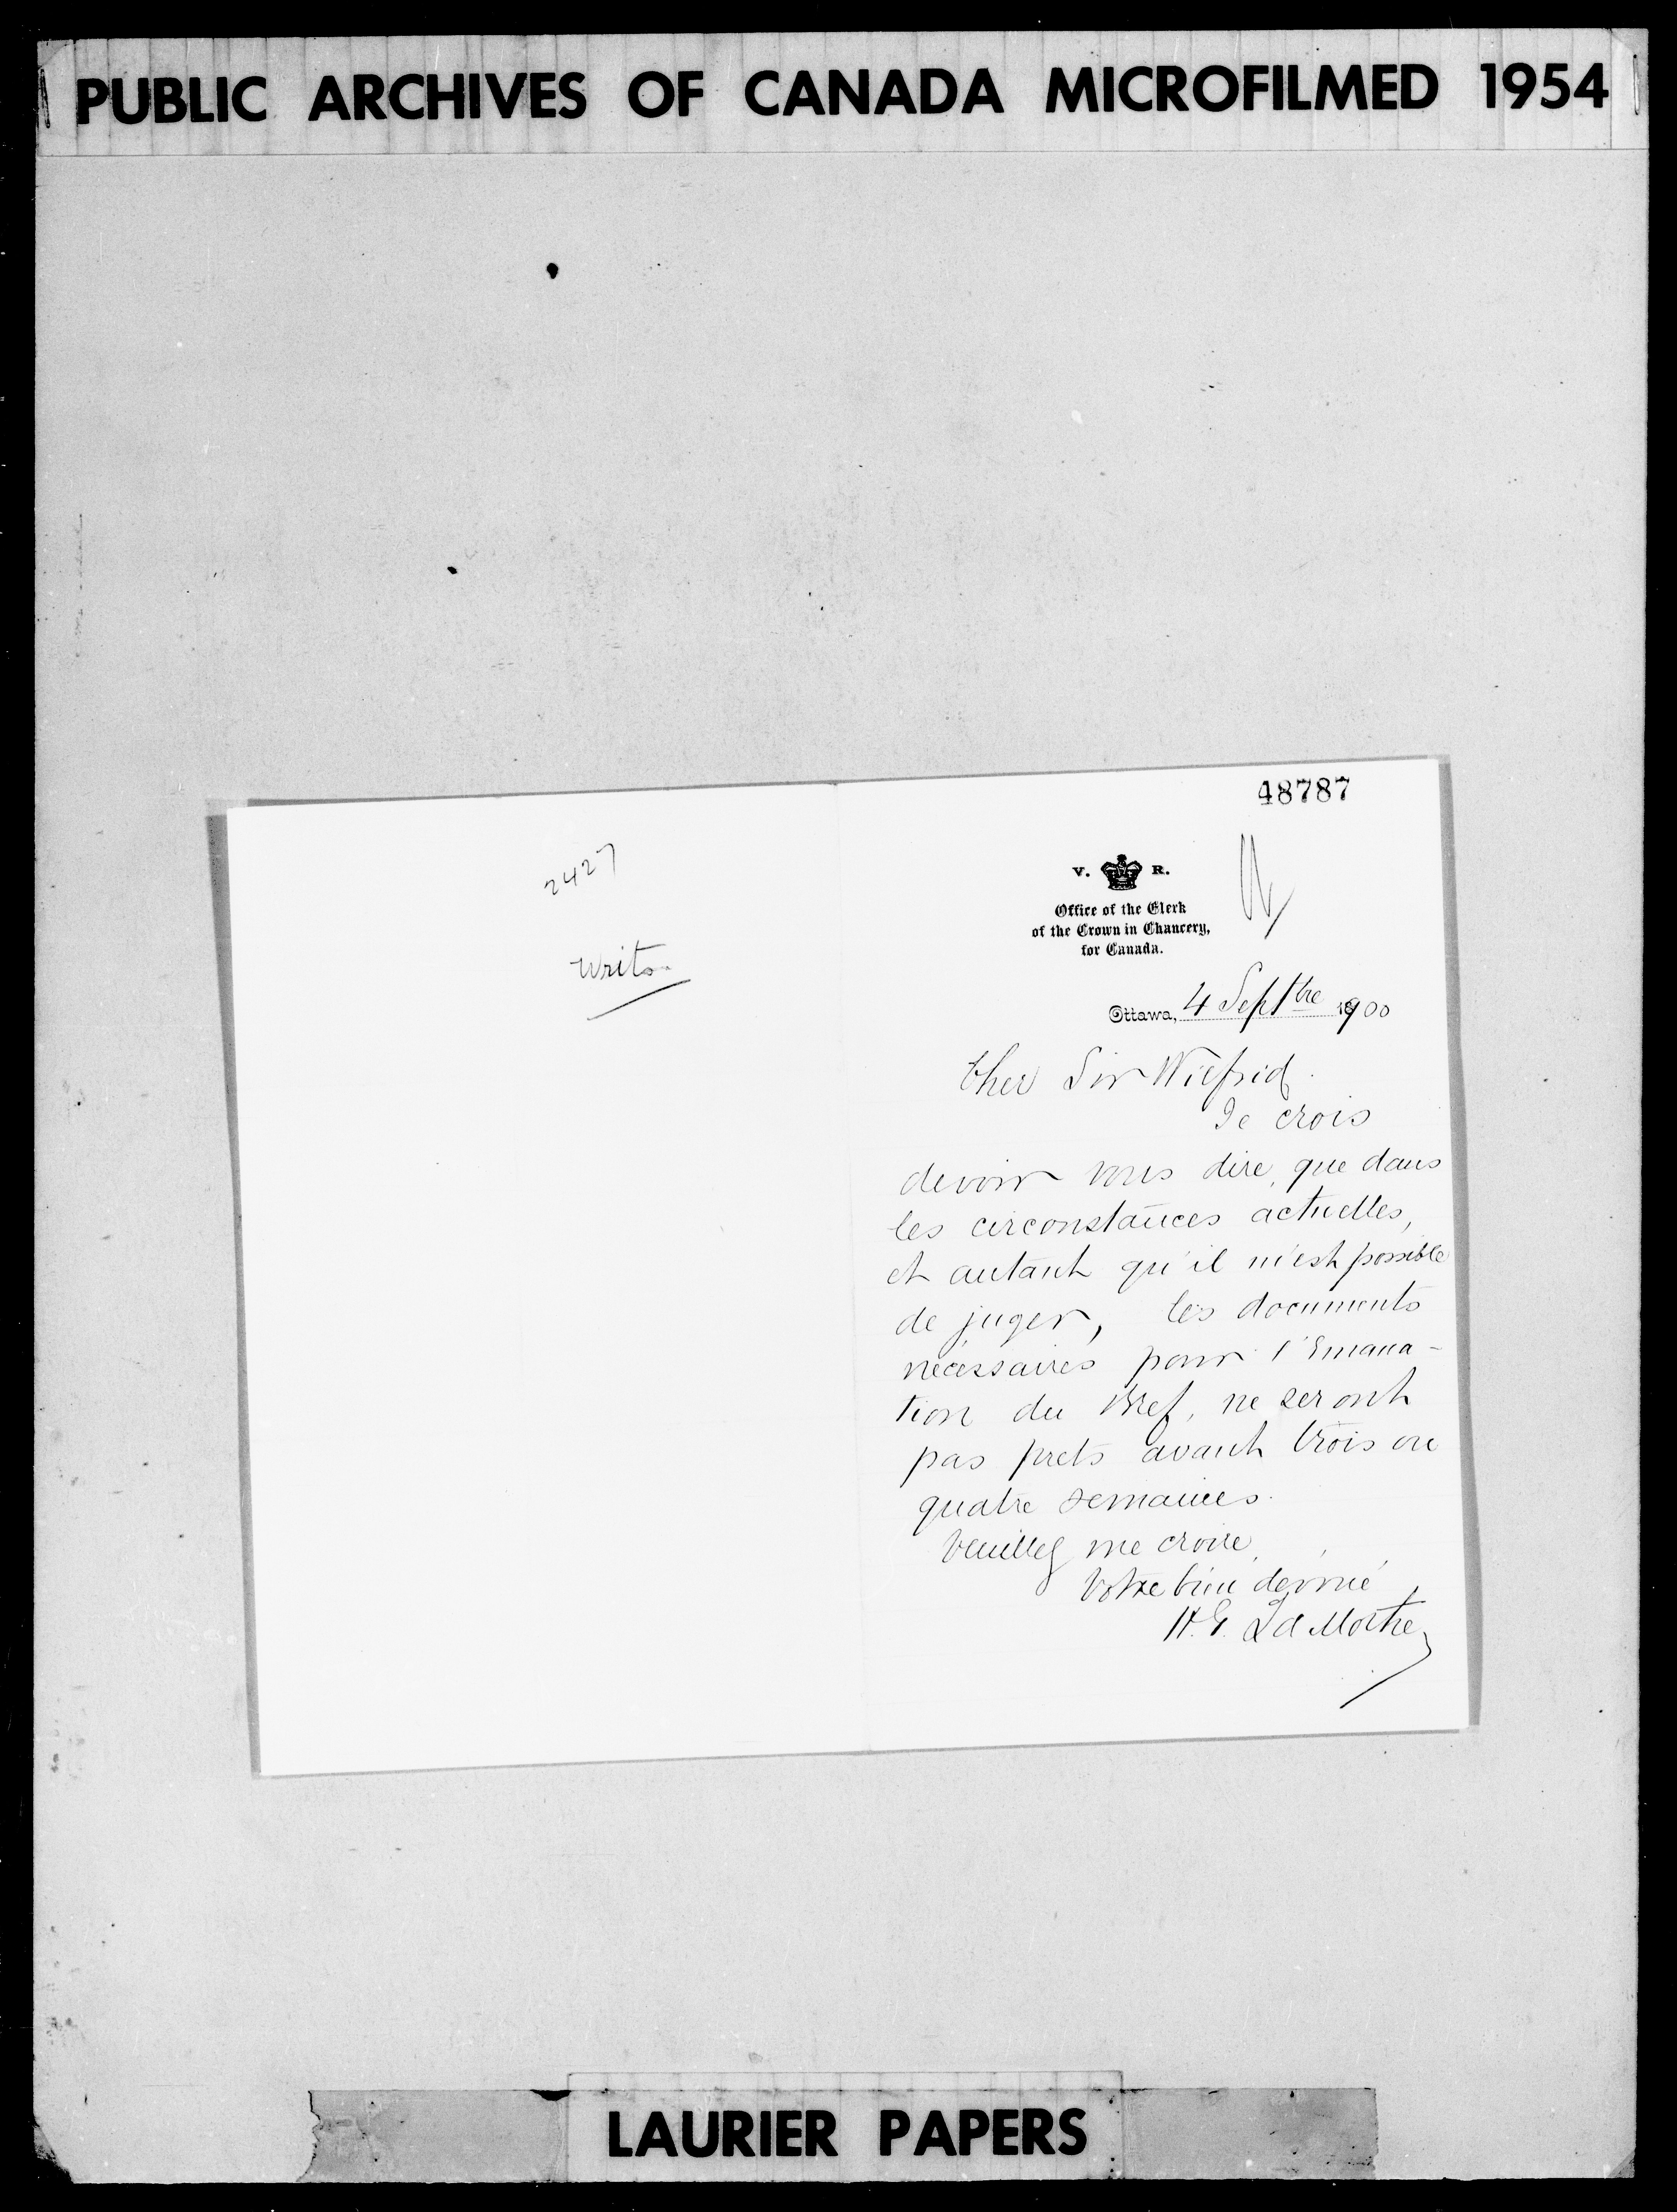 PUBLIC ARCHIVES OF CANADA MICROFILMED 1954
2427
Writs
48787
V. R.
Office of the Clerk
of the Crown in Chancery,
for Canada.
Ottawa, 4 Septbre 1900
Cher Sir Wilfrid
Je crois
devoir vous dire, que dans
les circonstances actuelles,
et autant qu'il m'est possible
de juger, les documents
nécessaires pour l'Emana-
tion du Bref, ne seront
pas prets avant trois ou
quatre semaines.
Veuillez me croire,
Votre bien dévoué
H. G. LaMothe
LAURIER PAPERS